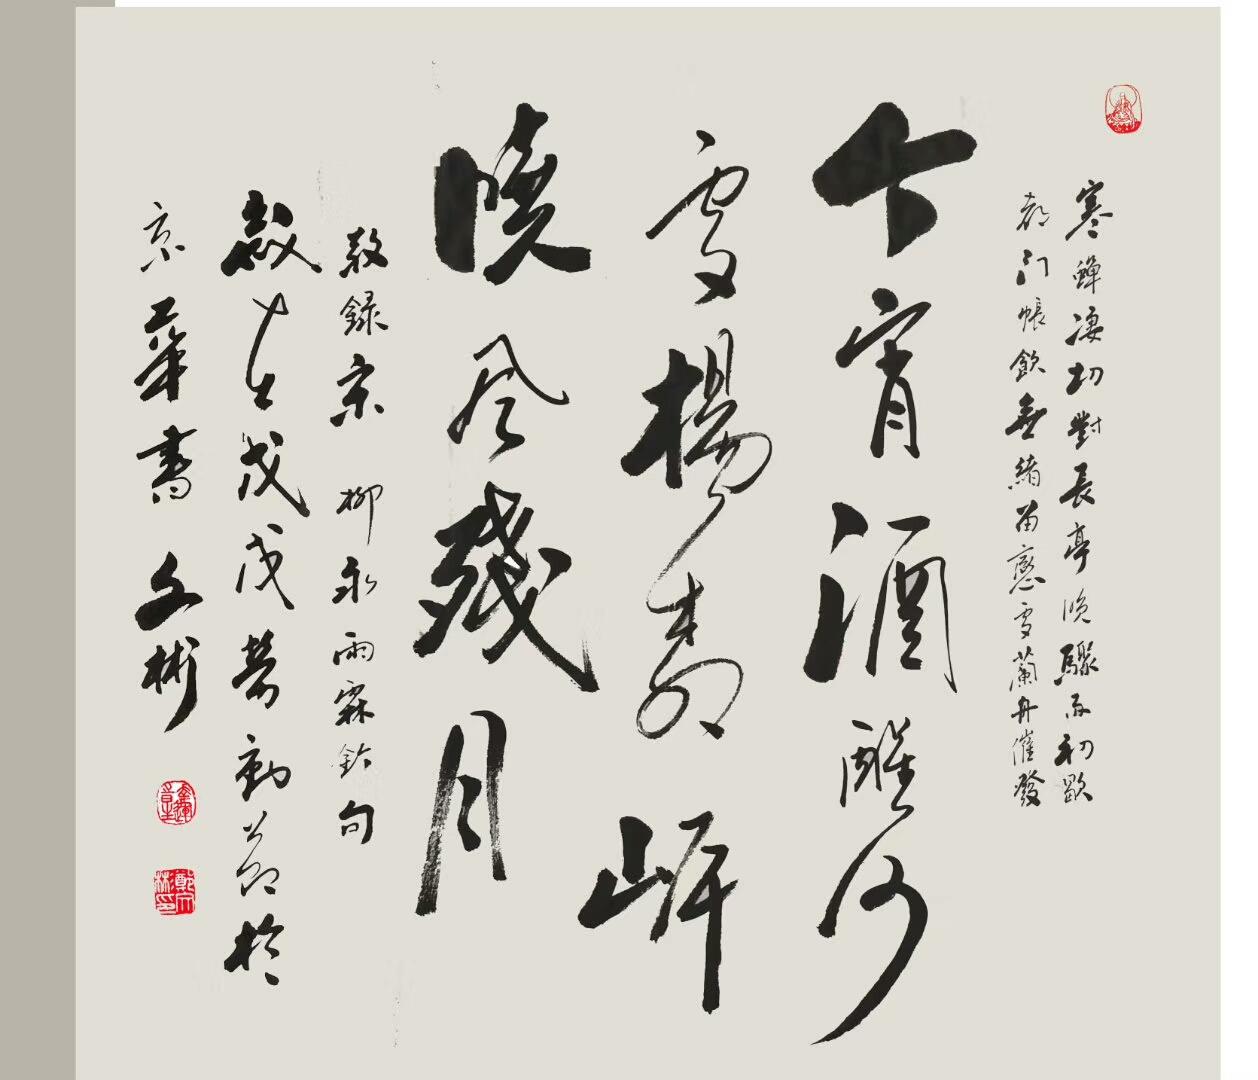 寒蟬凄切對長亭晚驟雨初歇
都门帳飲無緒留戀處蘭舟催發
今宵酒醒何
處楊柳岸
曉风殘月
敬錄宋 柳永雨霖鈴句
歲在戊戌勞動節於
京華書 文彬